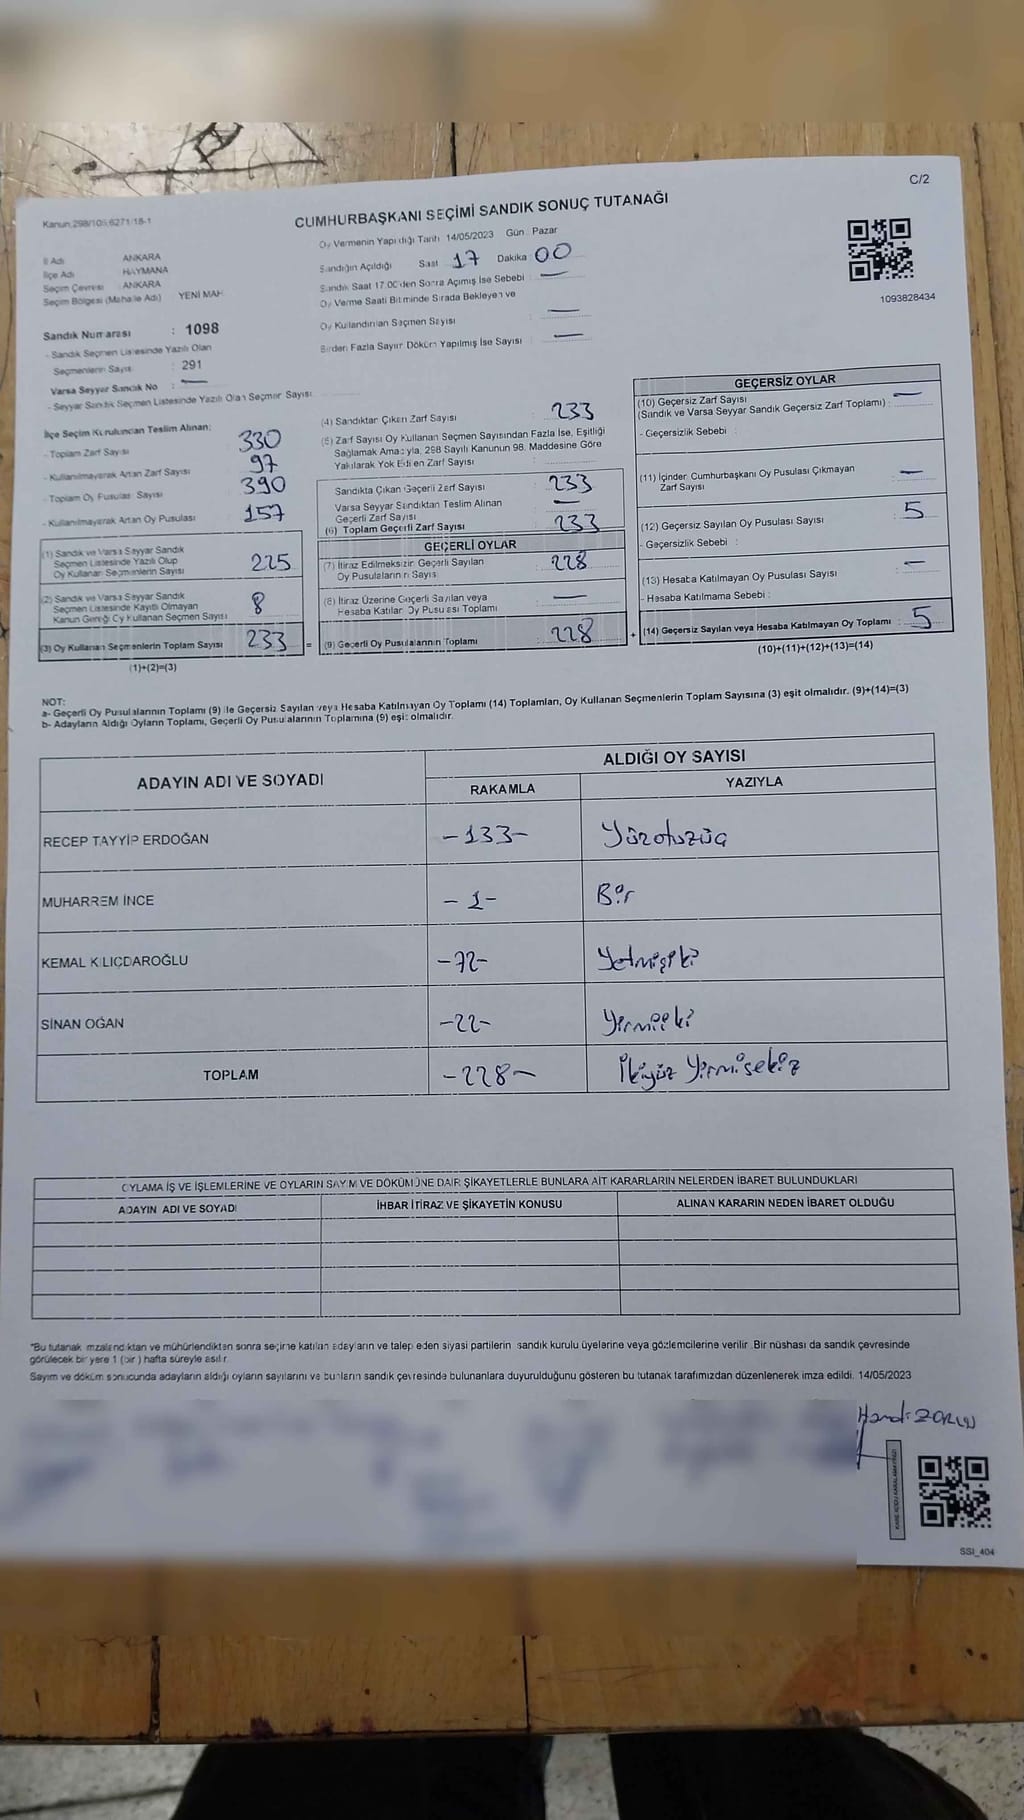 C/2
Kanun:298/105,6271/18-1
CUMHURBAŞKANI SEÇİMİ SANDIK SONUÇ TUTANAĞI
İl Adı ANKARA
İlçe Adı HAYMANA
Seçim Çevresi ANKARA
Seçim Bölgesi (Mahalle Adı) YENİ MAH.
Oy Vermenin Yapıldığı Tarih 14/05/2023 Gün : Pazar
Sandığın Açıldığı Saat 17 Dakika : 00
Sandık Saat 17:00'den Sonra Açılmış İse Sebebi : —
Oy Verme Saati Bitiminde Sırada Bekleyen ve
Oy Kullandırılan Seçmen Sayısı : —
Birden Fazla Sayım Döküm Yapılmış İse Sayısı : —
1093828434
Sandık Numarası : 1098
- Sandık Seçmen Listesinde Yazılı Olan
Seçmenlerin Sayısı : 291
Varsa Seyyar Sandık No : —
- Seyyar Sandık Seçmen Listesinde Yazılı Olan Seçmen Sayısı
İlçe Seçim Kurulundan Teslim Alınan:
- Toplam Zarf Sayısı 330
- Kullanılmayarak Artan Zarf Sayısı 97
- Toplam Oy Pusulası Sayısı 390
- Kullanılmayarak Artan Oy Pusulası 157
(1) Sandık ve Varsa Seyyar Sandık
Seçmen Listesinde Yazılı Olup
Oy Kullanan Seçmenlerin Sayısı 225
(2) Sandık ve Varsa Seyyar Sandık
Seçmen Listesinde Kayıtlı Olmayan
Kanun Gereği Oy Kullanan Seçmen Sayısı 8
(3) Oy Kullanan Seçmenlerin Toplam Sayısı 233 =
(1)+(2)=(3)
(4) Sandıktan Çıkan Zarf Sayısı : 233
(5) Zarf Sayısı Oy Kullanan Seçmen Sayısından Fazla İse, Eşitliği
Sağlamak Amacıyla, 298 Sayılı Kanunun 98. Maddesine Göre
Yakılarak Yok Edilen Zarf Sayısı
Sandıkta Çıkan Geçerli Zarf Sayısı : 233
Varsa Seyyar Sandıktan Teslim Alınan
Geçerli Zarf Sayısı : —
(6) Toplam Geçerli Zarf Sayısı 233
GEÇERLİ OYLAR
(7) İtiraz Edilmeksizin Geçerli Sayılan
Oy Pusulalarının Sayısı 228
(8) İtiraz Üzerine Geçerli Sayılan veya
Hesaba Katılan Oy Pusulası Toplamı : —
(9) Geçerli Oy Pusulalarının Toplamı : 228 +
GEÇERSİZ OYLAR
(10) Geçersiz Zarf Sayısı
(Sandık ve Varsa Seyyar Sandık Geçersiz Zarf Toplamı) : —
- Geçersizlik Sebebi :
(11) İçinden Cumhurbaşkanı Oy Pusulası Çıkmayan
Zarf Sayısı —
(12) Geçersiz Sayılan Oy Pusulası Sayısı : 5
- Geçersizlik Sebebi :
(13) Hesaba Katılmayan Oy Pusulası Sayısı : —
- Hesaba Katılmama Sebebi :
(14) Geçersiz Sayılan veya Hesaba Katılmayan Oy Toplamı : 5
(10)+(11)+(12)+(13)=(14)
NOT:
a- Geçerli Oy Pusulalarının Toplamı (9) ile Geçersiz Sayılan veya Hesaba Katılmayan Oy Toplamı (14) Toplamları, Oy Kullanan Seçmenlerin Toplam Sayısına (3) eşit olmalıdır. (9)+(14)=(3)
b- Adayların Aldığı Oyların Toplamı, Geçerli Oy Pusulalarının Toplamına (9) eşit olmalıdır.
ADAYIN ADI VE SOYADI
ALDIĞI OY SAYISI
RAKAMLA YAZIYLA
RECEP TAYYİP ERDOĞAN -133- Yüzotuzüç
MUHARREM İNCE -1- Bir
KEMAL KILIÇDAROĞLU -72- Yetmişiki
SİNAN OĞAN -22- Yirmiiki
TOPLAM -228- İkiyüz Yirmisekiz
OYLAMA İŞ VE İŞLEMLERİNE VE OYLARIN SAYIM VE DÖKÜMÜNE DAİR ŞİKAYETLERLE BUNLARA AİT KARARLARIN NELERDEN İBARET BULUNDUKLARI
ADAYIN ADI VE SOYADI İHBAR İTİRAZ VE ŞİKAYETİN KONUSU ALINAN KARARIN NEDEN İBARET OLDUĞU
*Bu tutanak imzalandıktan ve mühürlendikten sonra seçime katılan adayların ve talep eden siyasi partilerin sandık kurulu üyelerine veya gözlemcilerine verilir. Bir nüshası da sandık çevresinde
görülecek bir yere 1 (bir ) hafta süreyle asılır.
Sayım ve döküm sonucunda adayların aldığı oyların sayılarını ve bunların sandık çevresinde bulunanlara duyurulduğunu gösteren bu tutanak tarafımızdan düzenlenerek imza edildi. 14/05/2023
SSI_404